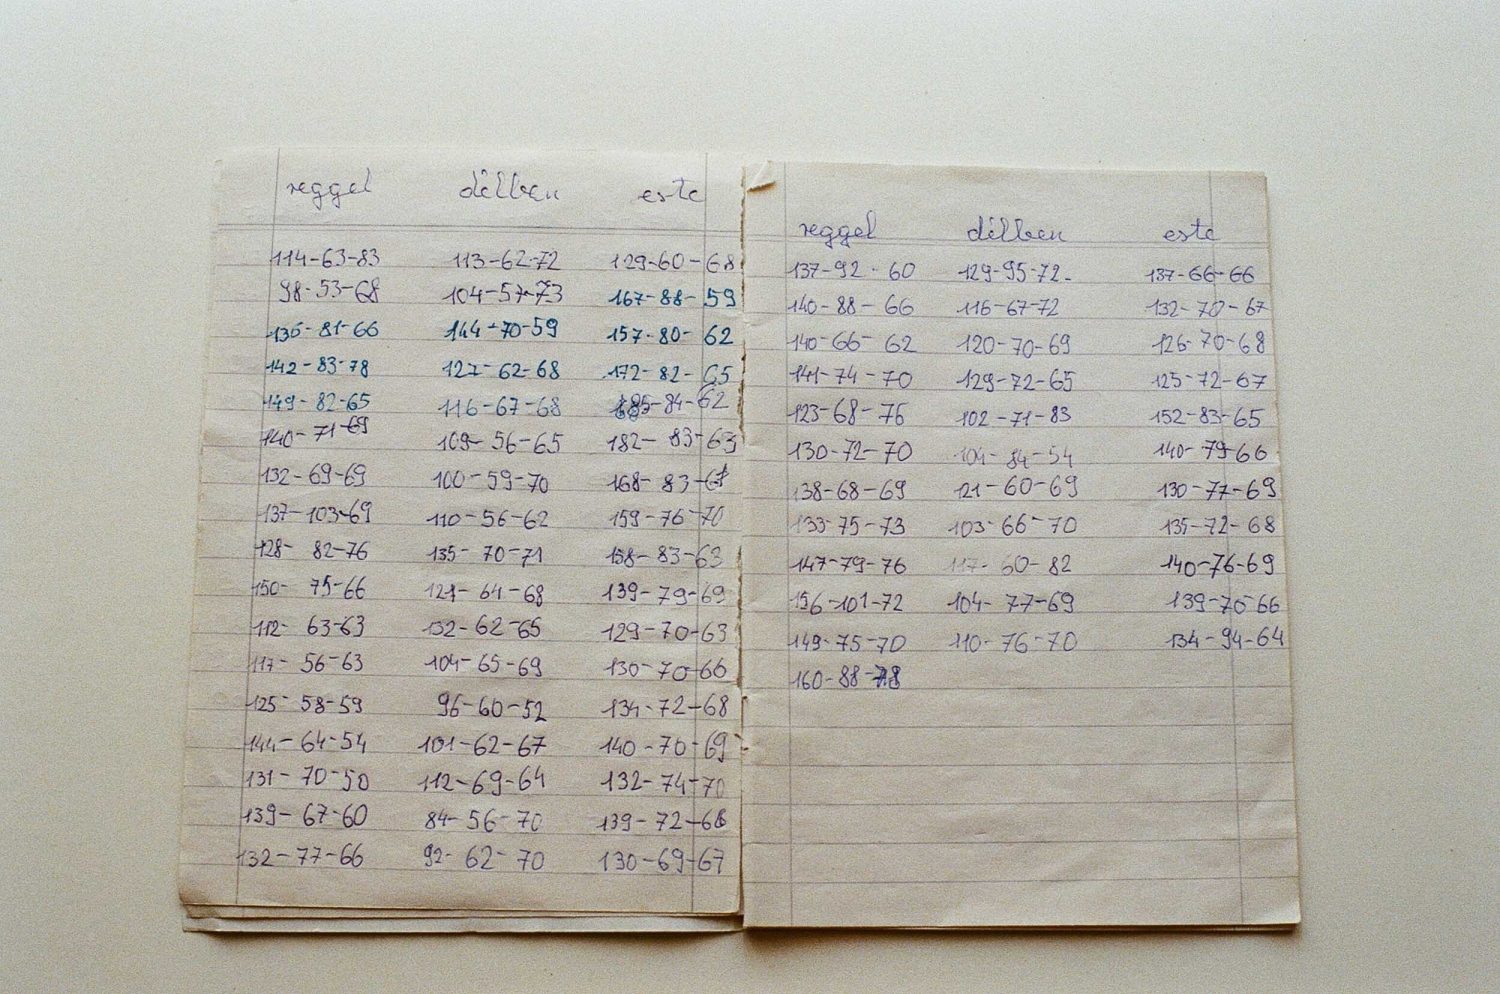 reggel délben este
114-63-83 113-62-72 129-60-68
98-53-68 104-57-73 167-88-59
136-81-66 144-70-59 157-80-62
142-83-78 127-62-68 172-82-65
149-82-65 116-67-68
140-71-69 109-56-65 182-83-63
132-69-69 100-59-70
137-103-69 110-56-62 159-76-70
128-82-76 135-70-71 158-83-63
150-75-66 139-79-69
112-63-63 132-62-65 129-70-63
117-56-63 104-65-69 130-70-66
125-58-59 96-60-52 134-72-68
144-64-54 101-62-67 140-70-69
131-70-50 112-69-64 132-74-70
139-67-60 84-56-70 139-72-66
132-77-66 92-62-70 130-69-67
reggel délben este
137-92-60 129-95-72- 137-66-66
140-88-66 116-67-72 132-70-67
140-66-62 120-70-69 126-70-68
141-74-70 129-72-65 125-72-67
123-68-76 102-71-83 152-83-65
130-72-70 104-84-54 140-79-66
138-68-69 121-60-69 130-77-69
133-75-73 103-66-70 135-72-68
147-79-76 117-60-82 140-76-69
156-101-72 104-77-69 139-70-66
149-75-70 110-76-70 134-94-64
160-88-78